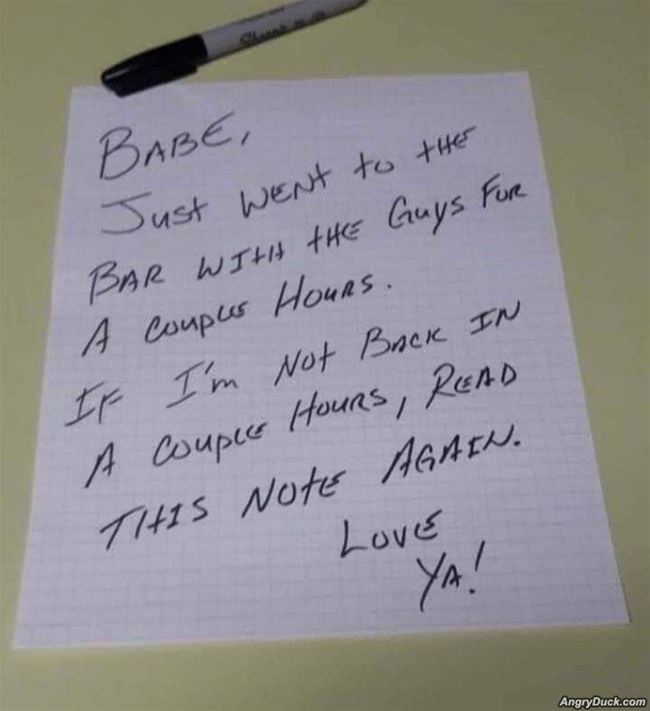 BABE,
Just WENt to tHE
BAR WItH tHE Guys FOR
A COUPLE HOURS.
IF I'm Not BACK IN
A COUPLE HOURS, READ
THIS NOtE AGAIN.
LOVE
YA!
AngryDuck.com